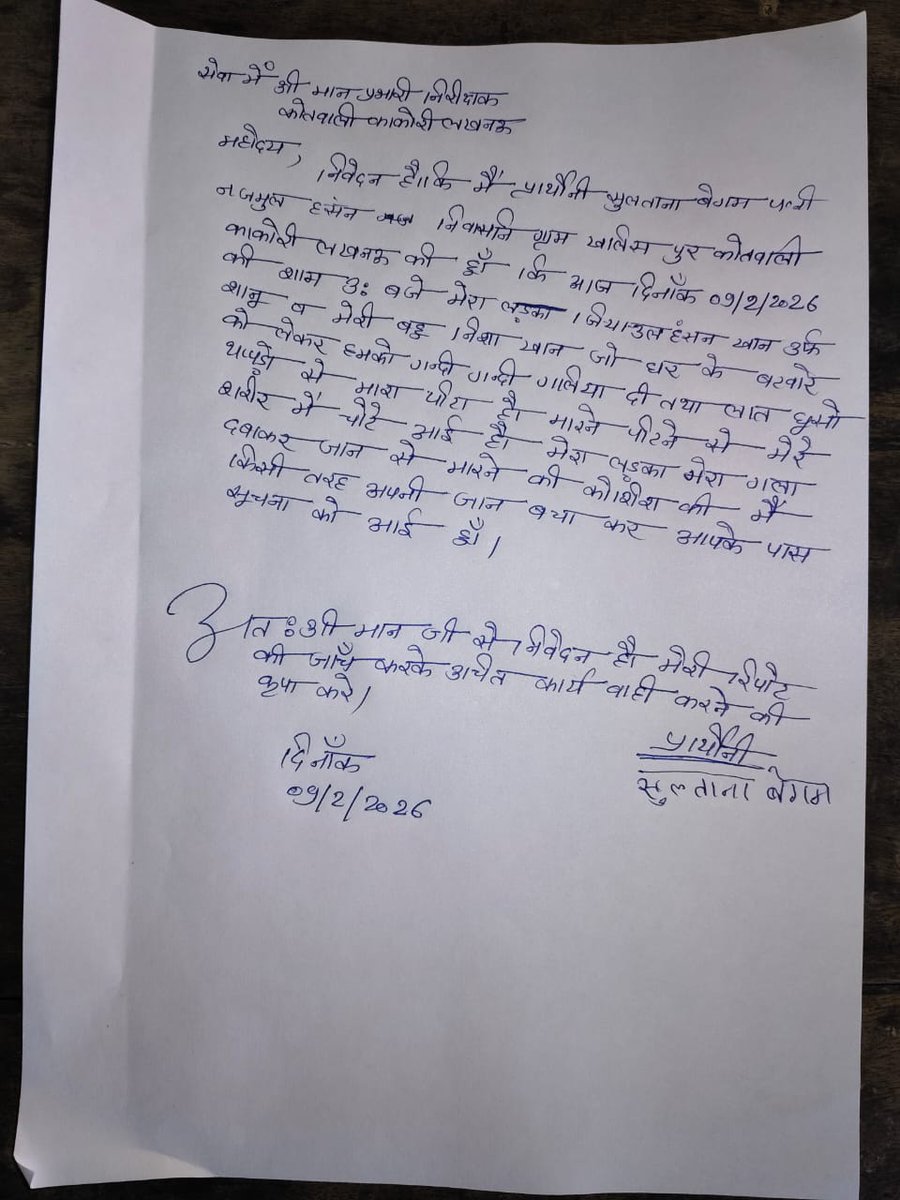 सेवा में श्री मान प्रभारी निरीक्षक
कोतवाली काकोरी लखनऊ
महोदय,
निवेदन है। कि मैं प्रार्थीनी सुलताना बेगम पत्नी
नजमुल हसन निवासनि ग्राम खालिस पुर कोतवाली
काकोरी लखनऊ की हूँ। कि आज दिनाँक 09/2/2026
की शाम 3: बजे मेरा लड़का जियाउल हसन खान उर्फ
शानू व मेरी बहू निशा खान जो घर के बटवारे
को लेकर हमको गन्दी गन्दी गालिया दी तथा लात घूसो
थप्पड़ो से मारा पीटा है। मारने पीटने से मेरे
शरीर में चोटे आई है। मेरा लड़का मेरा गला
दवाकर जान से मारने की कोशिश की मैं
किसी तरह अपनी जान बचा कर आपके पास
सूचना को आई हूँ।
अत: श्री मान जी से निवेदन है। मेरी रिपोट
की जाँच करके उचित कार्य वाही करने की
कृपा करे।
दिनाँक
09/2/2026
प्रार्थीनी
सुलताना बेगम